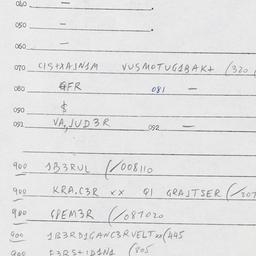 040 —
050 —
060 —
070 CIS+XAJN1M VUSMOTUG1BAK+ (320
080 GFR 081 —
090 $
091 VA,JUD3R 092 —
900 1B3RUL (/008110
900 KRA.C3R xx Q1 GRAJTSER (/307
900 GPEM3R (/087020
900 1B3RD1GANC3RVELT xx(445
900 F3RS+1D1N1 (805